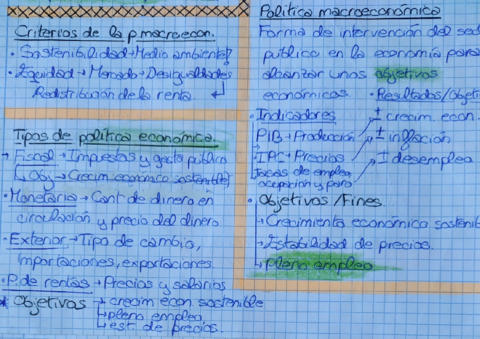 Criterios de la p.macroecon.
· Sostenibilidad → Medio ambiente
· Equidad → Mercado → Desigualdades
Redistribución de la renta ↲
Tipos de política económica.
· Fiscal → Impuestos y gasto público
↳ Obj → Crecim económico sostenible
· Monetaria → Cant de dinero en
circulación y precio del dinero
· Exterior → Tipo de cambio,
importaciones, exportaciones.
· P. de rentas → Precios y salarios
* Objetivos → crecim econ sostenible
→ pleno empleo
→ est. de precios
Política macroeconómica
Forma de intervención del sec
público en la economía para
alcanzar unos objetivos
económicos. · Resultados/Objeti
· Indicadores ± crecim econ.
PIB → Producción ± inflación
IPC → Precios ± desempleo
Tasas de empleo
ocupación y paro
· Objetivos/Fines
→ Crecimiento económico sostenib
→ Estabilidad de precios.
→ pleno empleo